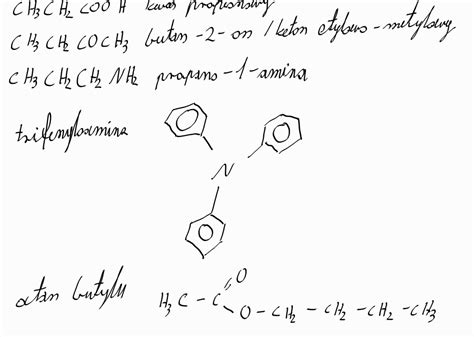 CH3CH2COOH kwas propionowy
CH3CH2COCH3 butan-2-on / keton etylowo-metylowy
CH3CH2CH2NH2 propano-1-amina
trifenyloamina
N
octan butylu H3C-C
O
O-CH2-CH2-CH2-CH3